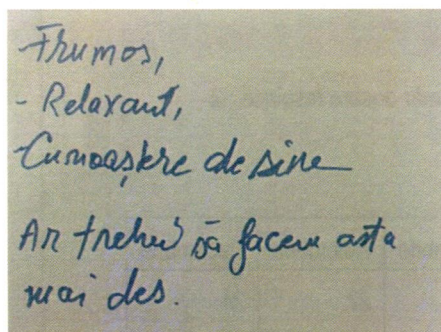 - Frumos,
- Relaxant,
- Cunoaștere de sine
Ar trebui să facem asta
mai des.